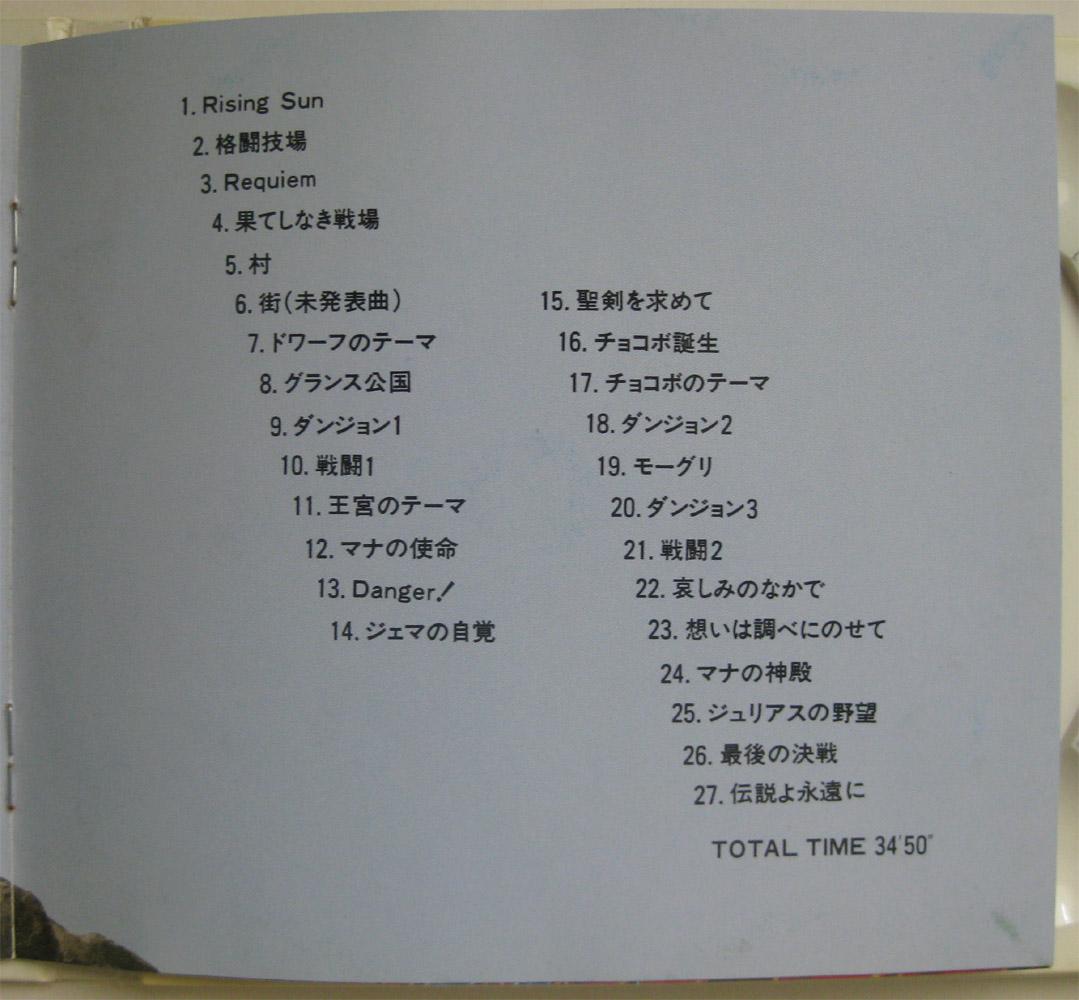 1. Rising Sun
2. 格闘技場
3. Requiem
4. 果てしなき戦場
5. 村
6. 街(未発表曲)
7. ドワーフのテーマ
8. グランス公国
9. ダンジョン1
10. 戦闘1
11. 王宮のテーマ
12. マナの使命
13. Danger!
14. ジェマの自覚
15. 聖剣を求めて
16. チョコボ誕生
17. チョコボのテーマ
18. ダンジョン2
19. モーグリ
20. ダンジョン3
21. 戦闘2
22. 哀しみのなかで
23. 想いは調べにのせて
24. マナの神殿
25. ジュリアスの野望
26. 最後の決戦
27. 伝説よ永遠に
TOTAL TIME 34'50"